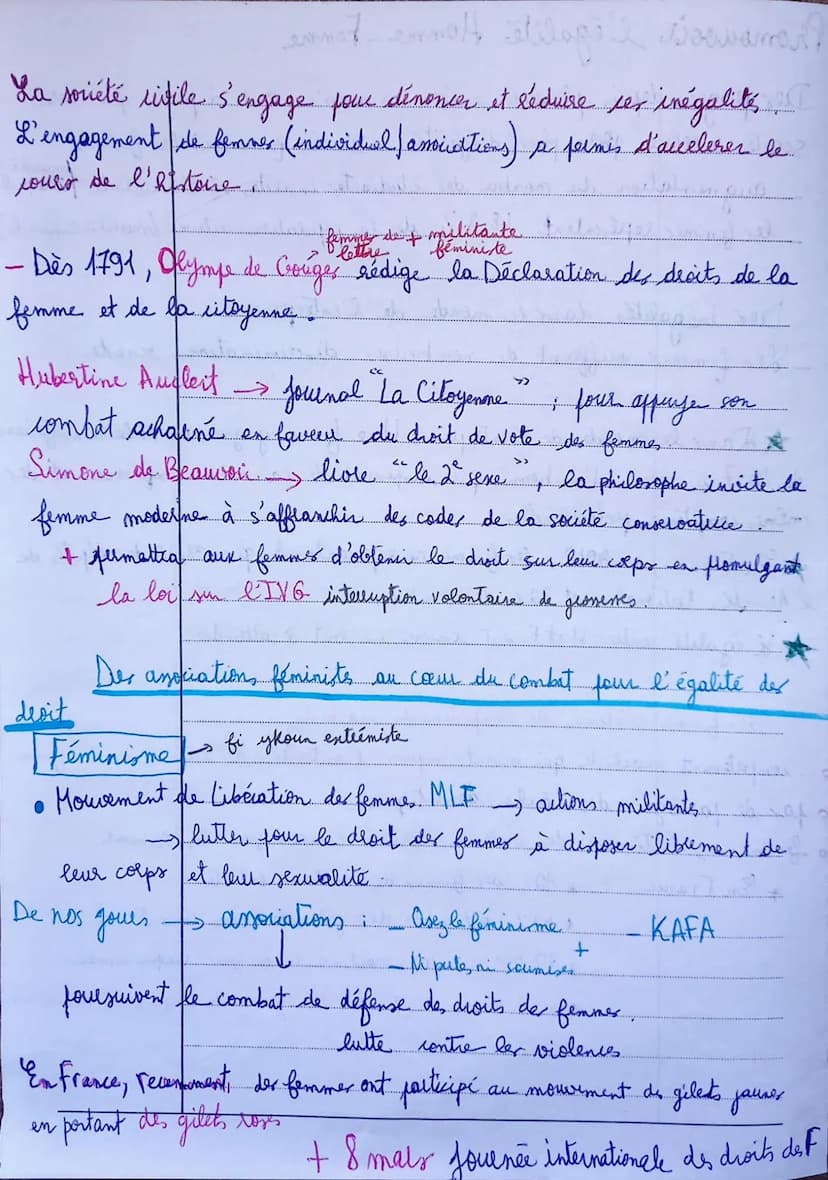 La société civile s'engage pour dénoncer et réduire ces inégalités.
L'engagement de femmes (individuel/associations) a permis d'accelerer le
cours de l'Histoire.
femme de + militante
lettre féministe
- Dès 1791, Olympe de Gouges rédige la Déclaration des droits de la
femme et de la citoyenne.
Hubertine Auclert → Journal "La Citoyenne" ; pour appuyer son
combat acharné en faveur du droit de vote des femmes
Simone de Beauvoir → livre "le 2e sexe", la philosophe invite la
femme moderne à s'affranchir des codes de la société conservatrice.
+ permettra aux femmes d'obtenir le droit sur leur corps en promulgant
la loi sur l'IVG interruption volontaire de grossesses.
Des associations féministes au cœur du combat pour l'égalité des
droit
Féminisme → fi ykoun extrémiste
• Mouvement de Libération des femmes MLF → actions militants
→ lutter pour le droit des femmes à disposer librement de
leur corps et leur sexualité
De nos jours → associations : - Osez le féminisme - KAFA
+
↓ - Ni putes, ni soumises
poursuivent le combat de défense des droits des femmes.
lutte contre les violences
En France, recemment, des femmes ont participé au mouvement des gilets jaunes
en portant des gilets roses
+ 8 mars Journée internationale des droits des F